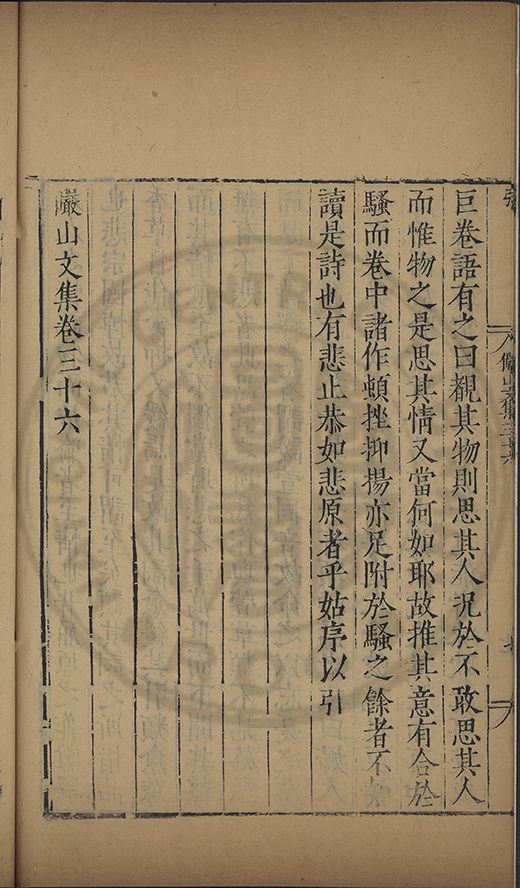 巨卷語有之曰覩其物則思其人況於不敢思其人
而惟物之是思其情又當何如耶故推其意有合於
騷而卷中諸作頓挫抑揚亦足附於騷之餘者不
讀是詩也有悲止恭如悲原者乎姑序以引
儼山文集卷三十六
儼山集卷三十六
七